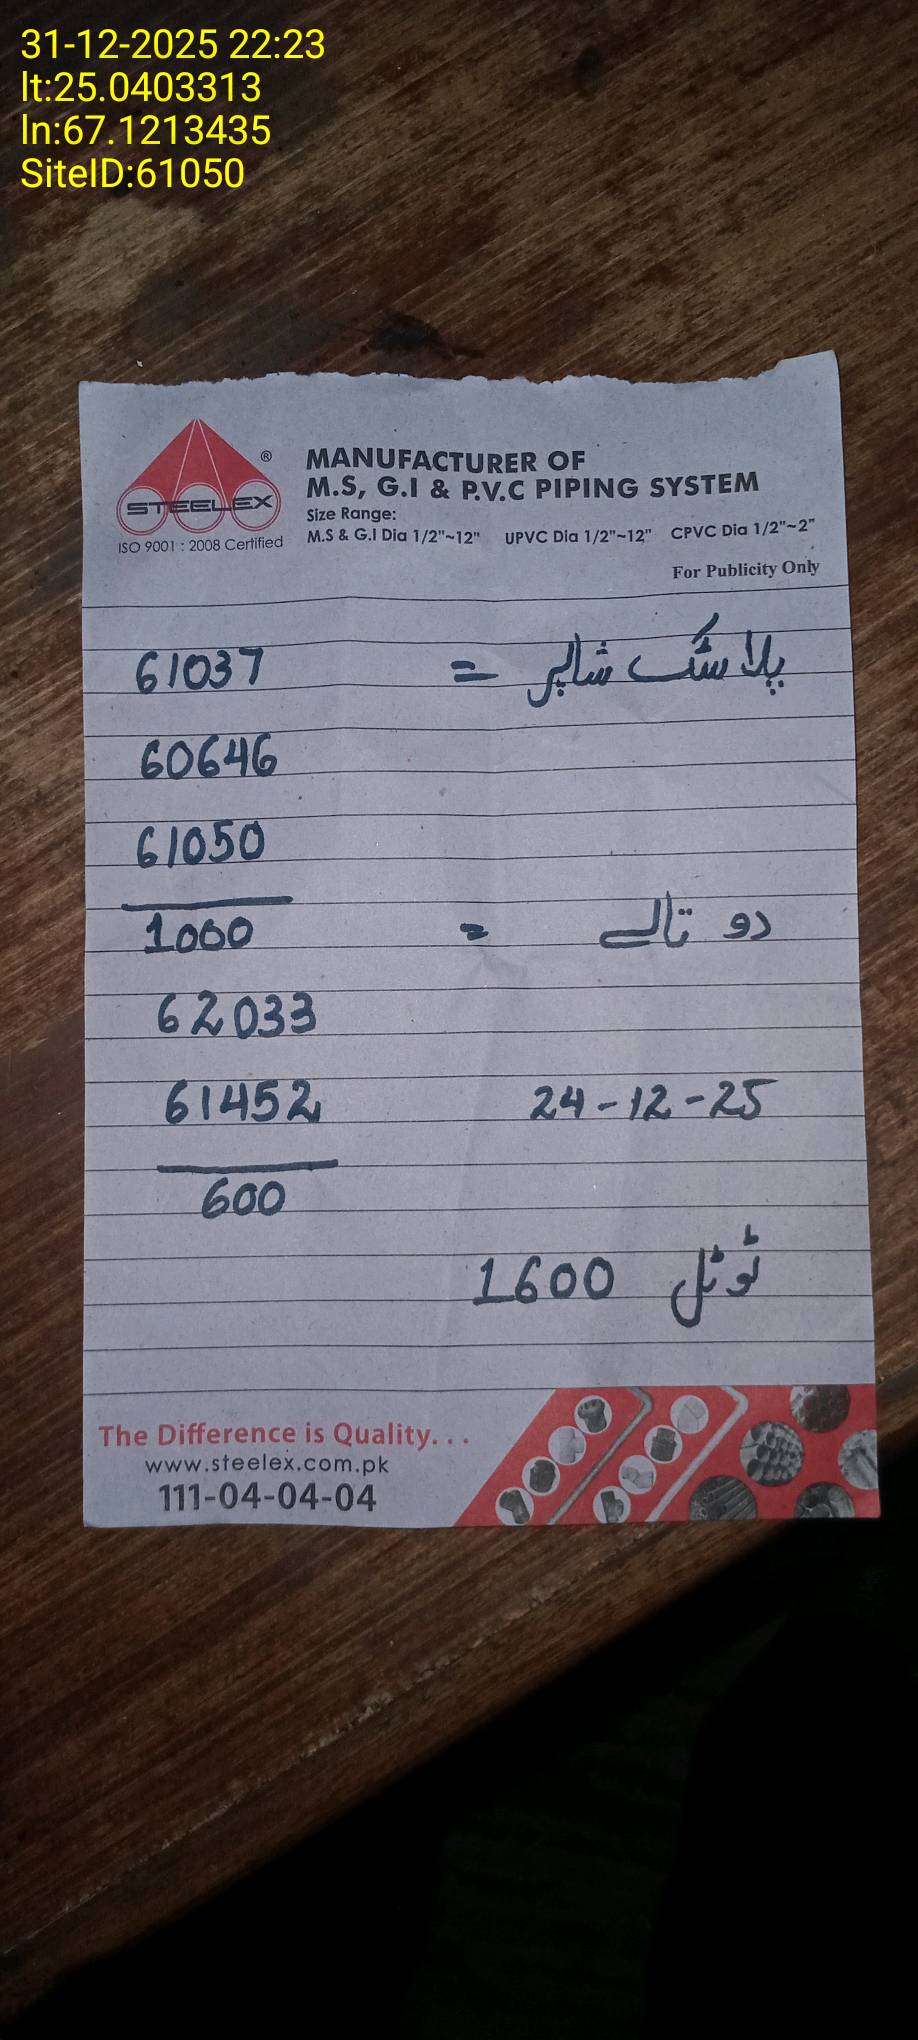 31-12-2025 22:23
lt:25.0403313
ln:67.1213435
SiteID:61050
STEELEX ®
ISO 9001 : 2008 Certified
MANUFACTURER OF
M.S, G.I & P.V.C PIPING SYSTEM
Size Range:
M.S & G.I Dia 1/2"~12" UPVC Dia 1/2"~12" CPVC Dia 1/2"~2"
For Publicity Only
پلاسٹک شاپر = 61037
60646
61050
دو تالے = 1000
62033
61452 24-12-25
600
ٹوٹل 1600
The Difference is Quality...
www.steelex.com.pk
111-04-04-04